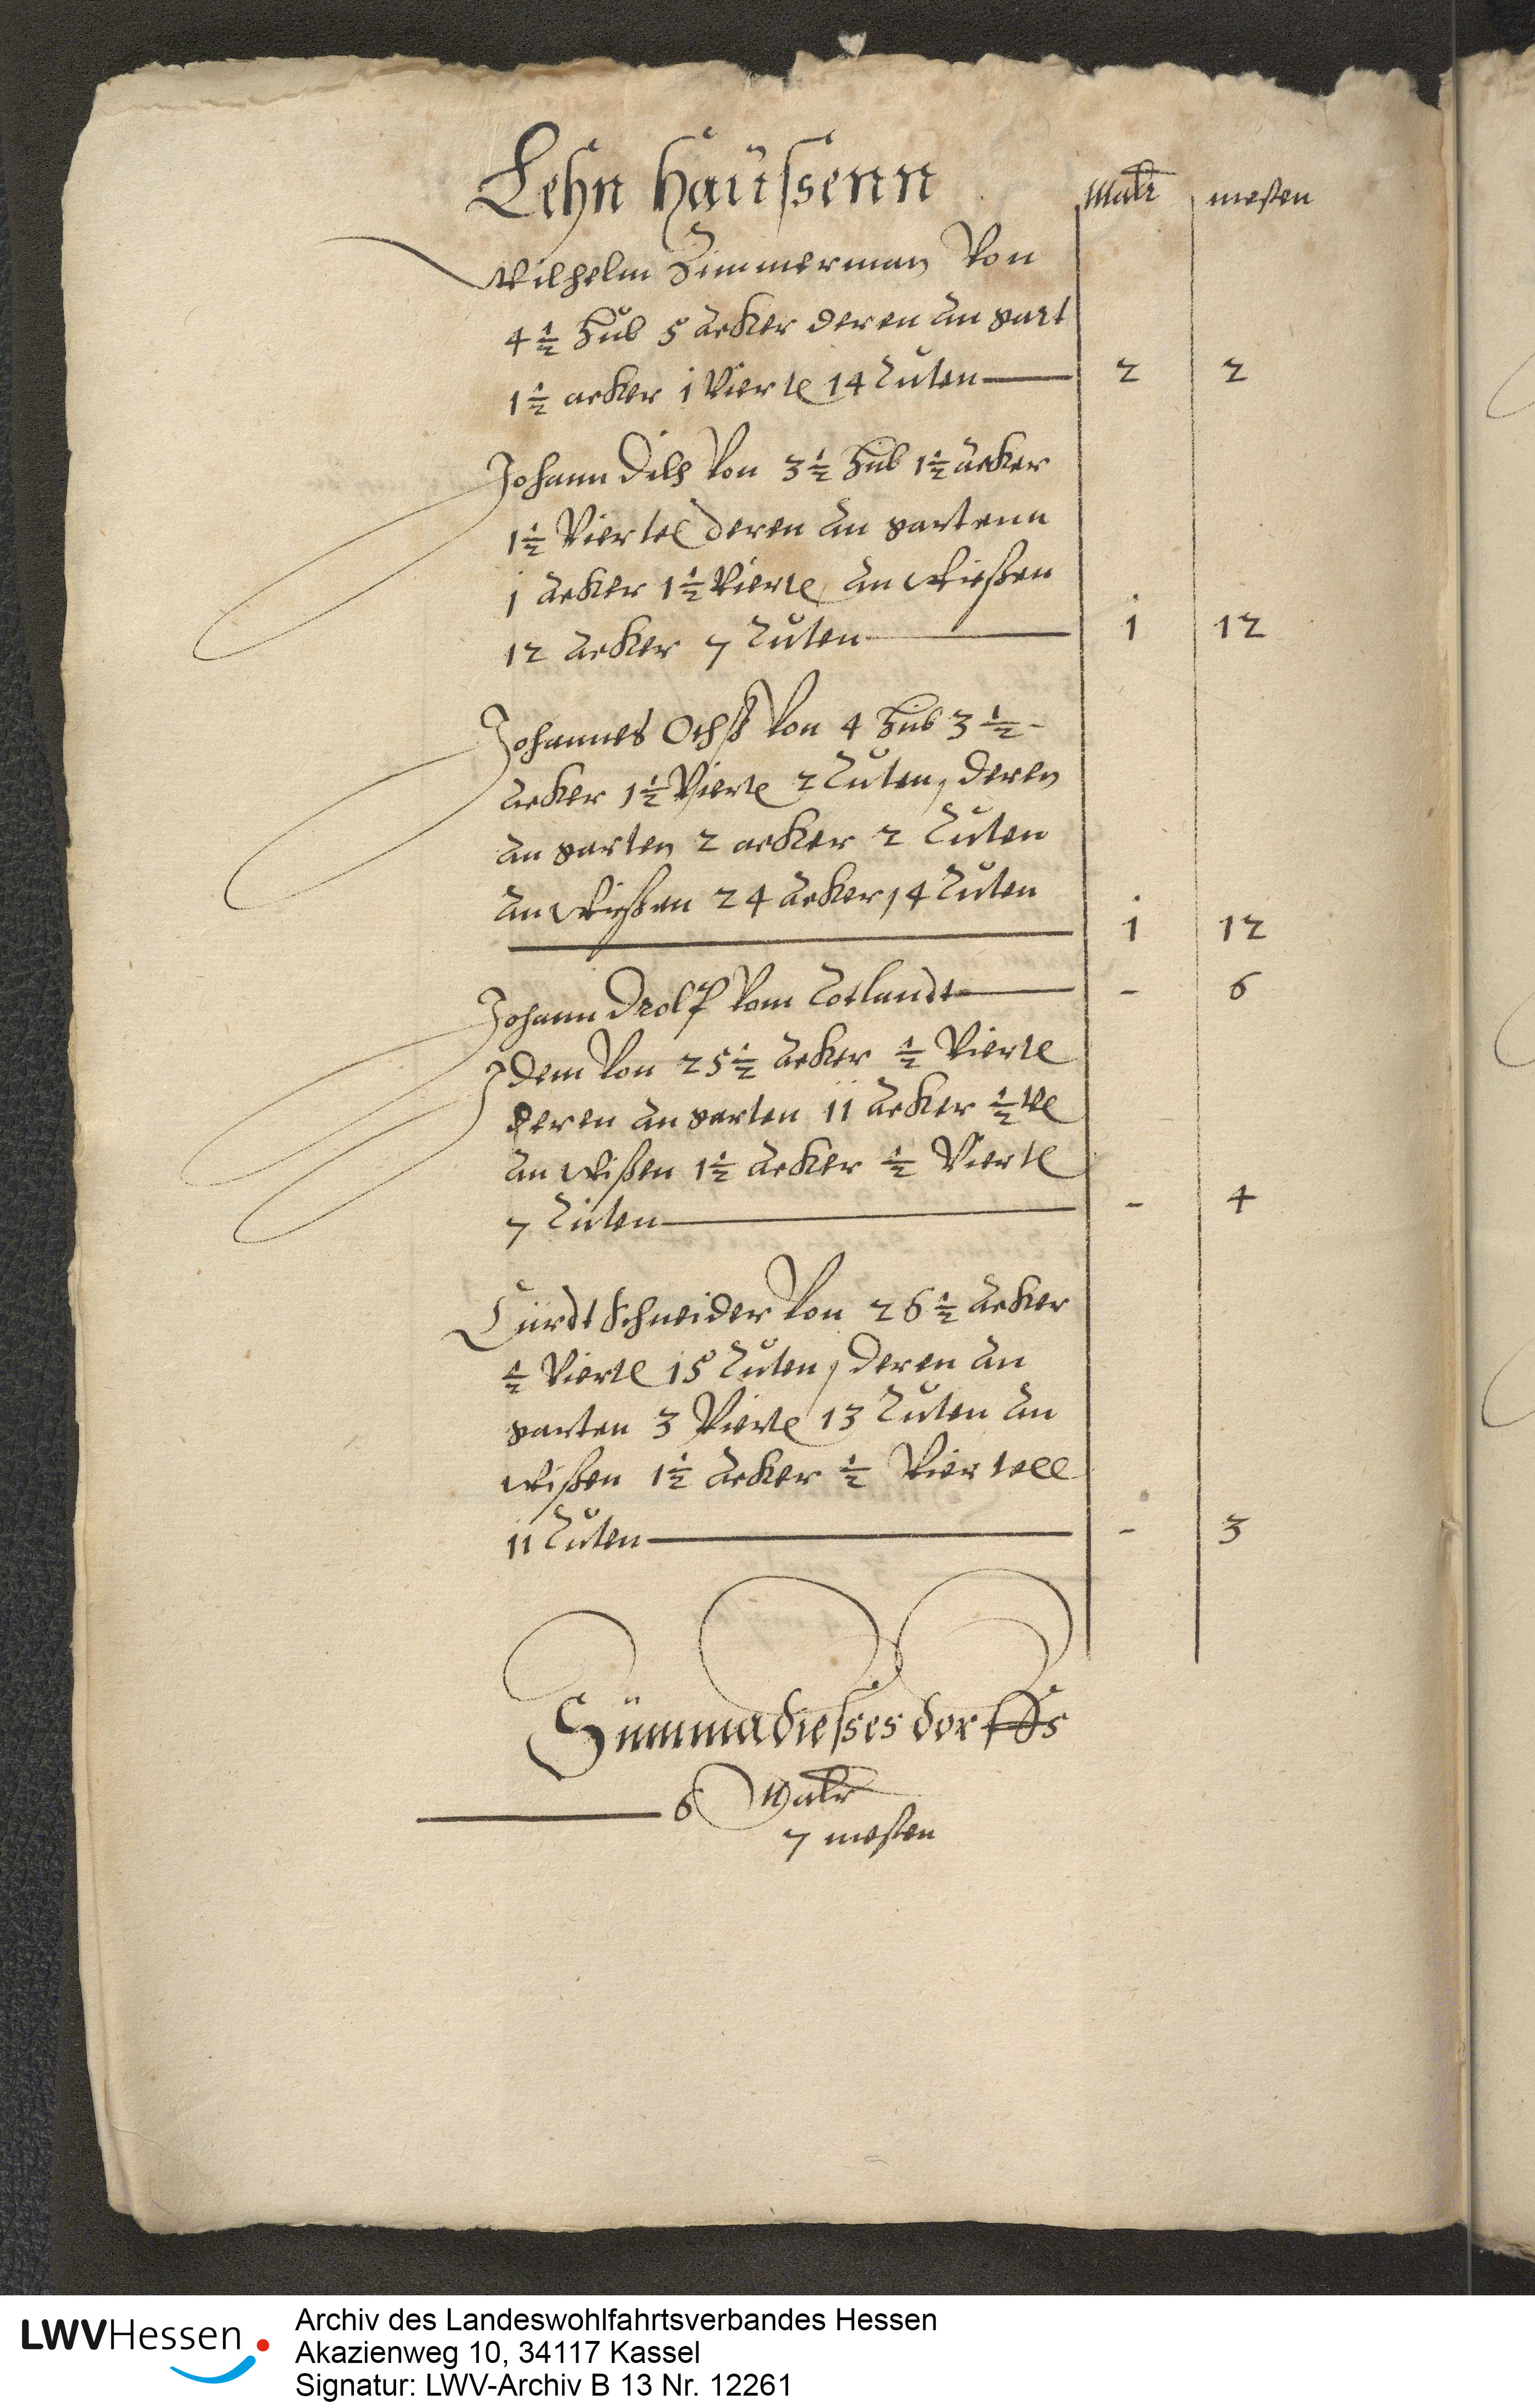 Lehn haussenn
Maltr mesten
Wilhelm Zimmerman Von
4 1/2 Hub 5 Acker deren An gart
1 1/2 acker 1 Viertl 14 Ruten — 2 2
Johann Dilh Von 3 1/2 Hub 1 1/2 Acker
1 1/2 Viertel deren An gartenn
1 Acker 1 1/2 Viertl An Wießen
12 Acker 7 Ruten — 1 12
Johannes Ochß Von 4 Hub 3 1/2 -
Acker 1 1/2 Viertl 2 Ruten, deren
An garten 2 acker 2 Ruten
An Wießen 24 Acker 14 Ruten
— 1 12
Johann Vom Rotlandt — - 6
Idem Von 25 1/2 Acker 1/2 Viertl
deren An garten 11 Acker 1/2 Vl
An Wißen 1 1/2 Acker 1/2 Viertl
7 Ruten — - 4
Curdt Schneider Von 26 1/2 Acker
1/2 Viertl 15 Ruten, deren An
garten 3 Viertl 13 Ruten An
Wißen 1 1/2 Acker 1/2 Viertell
11 Ruten — - 3
Summa diesses dorffs
— 6 Maltr
7 mesten
LWVHessen
Archiv des Landeswohlfahrtsverbandes Hessen
Akazienweg 10, 34117 Kassel
Signatur: LWV-Archiv B 13 Nr. 12261